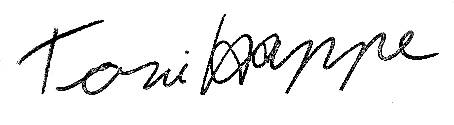 Toni Kappe